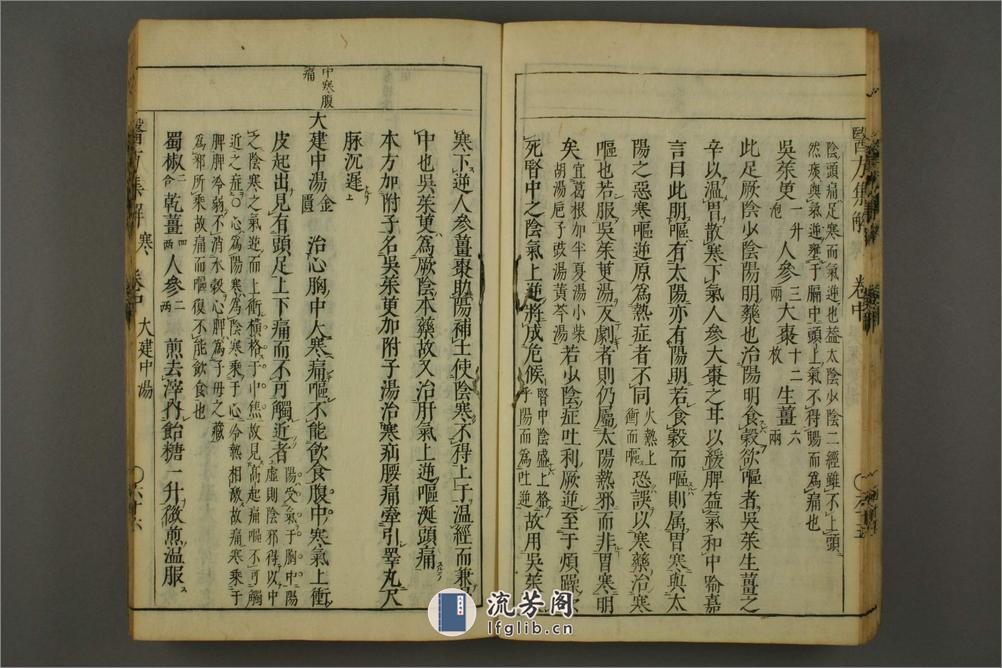 陰頭痛足寒而氣逆也蓋太陰少陰二經雖不上頭
然痰與氣逆壅于膈中頭上氣不得暢而為痛也
吳茱萸一升炮人參三兩大棗十二枚生薑六兩
此足厥陰少陰陽明藥也治陽明食穀欲嘔者吳茱生薑之
辛以溫胃散寒下氣人參大棗之甘以緩脾益氣和中喻嘉
言曰此明嘔有太陽亦有陽明若食穀而嘔則属胃寒與太
陽之惡寒嘔逆原為熱症者不同火熱上衝而嘔恐誤以寒藥治寒
嘔也若服吳茱萸湯反劇者則仍屬太陽熱邪而非胃寒明
矣宜葛根加半夏湯小柴胡湯梔子豉湯黃芩湯若少陰症吐利厥逆至于煩躁欲
死腎中之陰氣上逆將成危候腎中陰盛上格乎陽而為吐逆故用吳茱
醫方集解 卷中 六十五
寒下逆人參薑棗助陽補土使陰寒不得上干温經而兼
中也吳茱萸為厥陰本藥故又治肝氣上逆嘔涎頭痛
本方加附子名吳茱萸加附子湯治寒疝腰痛牽引睪丸尺
脉沉遲
中寒腹痛
大建中湯金匱 治心胸中大寒痛嘔不能飲食腹中寒氣上衝
皮起出見有頭足上下痛而不可觸近者陽受氣于胸中陽虛則陰邪得以中
之陰寒之氣逆而上衝橫格于中焦故見高起痛嘔不可觸
近之症○心為陽寒為陰寒乘于心冷熱相激故痛寒乘于
脾脾冷弱不消水穀心脾為子母之臟
為邪所乘故痛而嘔復不能飲食也
蜀椒二合乾薑四兩人參二兩 煎去滓內飴糖一升微煎温服
醫方集解 寒 卷中 大建中湯 六十六
流芳阁
lfglib.cn